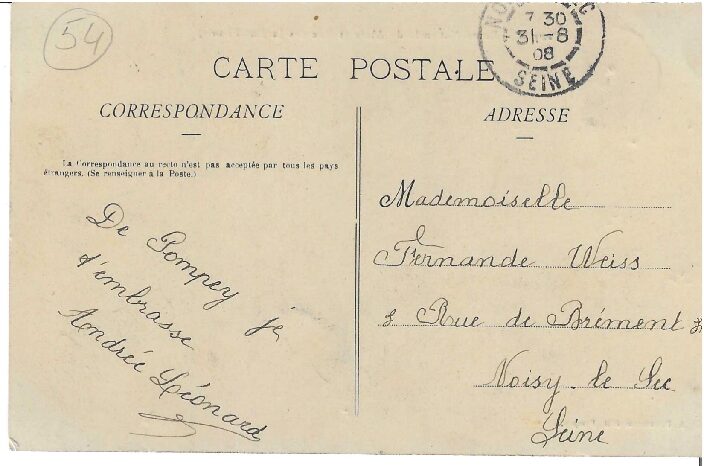 54
7 30
31-8
08
SEINE
CARTE POSTALE
CORRESPONDANCE
ADRESSE
La Correspondance au recto n'est pas acceptée par tous les pays
étrangers. (Se renseigner à la Poste.)
De Pompey je
t'embrasse
Andrée Léonard
Mademoiselle
Fernande Weiss
Rue de Brément
Noisy-le Sec
Seine